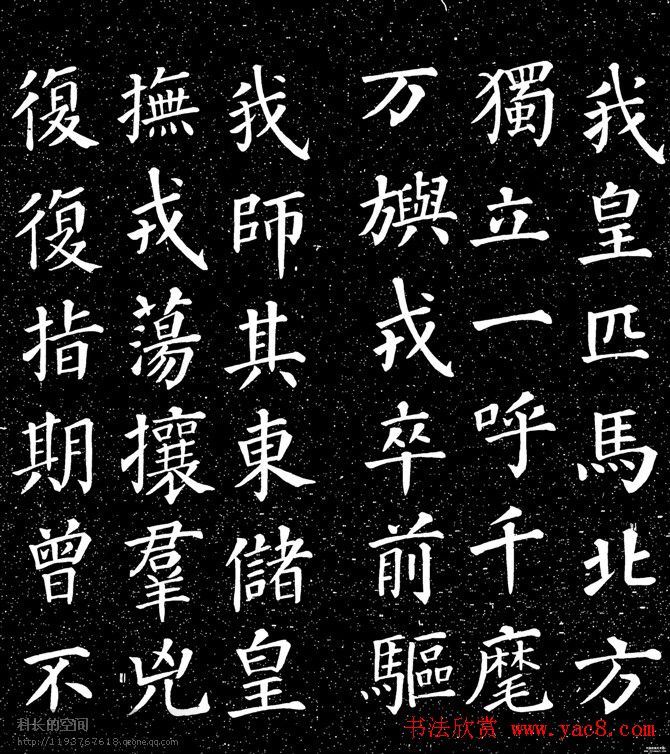 我皇匹馬北方
獨立一呼千麾
万旟戎卒前驅
我師其東儲皇
撫戎蕩攘羣兇
復復指期曾不
科长的空间
http://1193767618.qzone.qq.com
书法欣赏 www.yac8.com